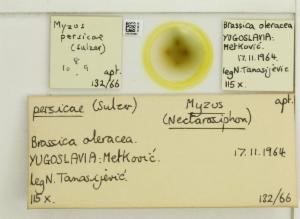 Myzus
persicae
(Sulzer)
8
10.9
apt.
132/66
Brassica oleracea
YUGOSLAVIA:
Metković.
17.11.1964.
leg N. Tanasijević
115x.
apt.
persicae (Sulzer)
Myzus
(Nectarosiphon)
apt.
Brassica oleracea.
YUGOSLAVIA: Metković.
17.11.1964
leg N. Tanasijević.
115x.
132/66